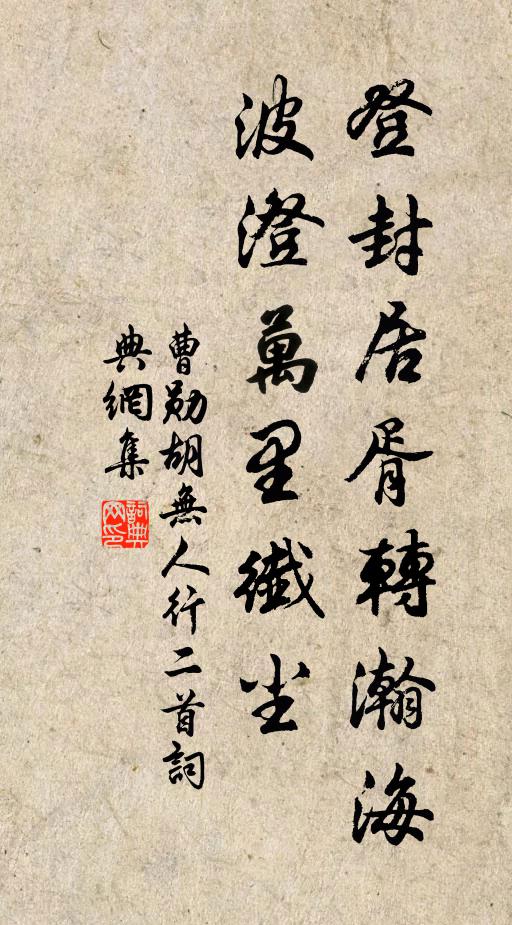 登封居胥轉瀚海
波澄萬里纖尘
曹勛胡無人行二首詞
典網集
詞典
网印